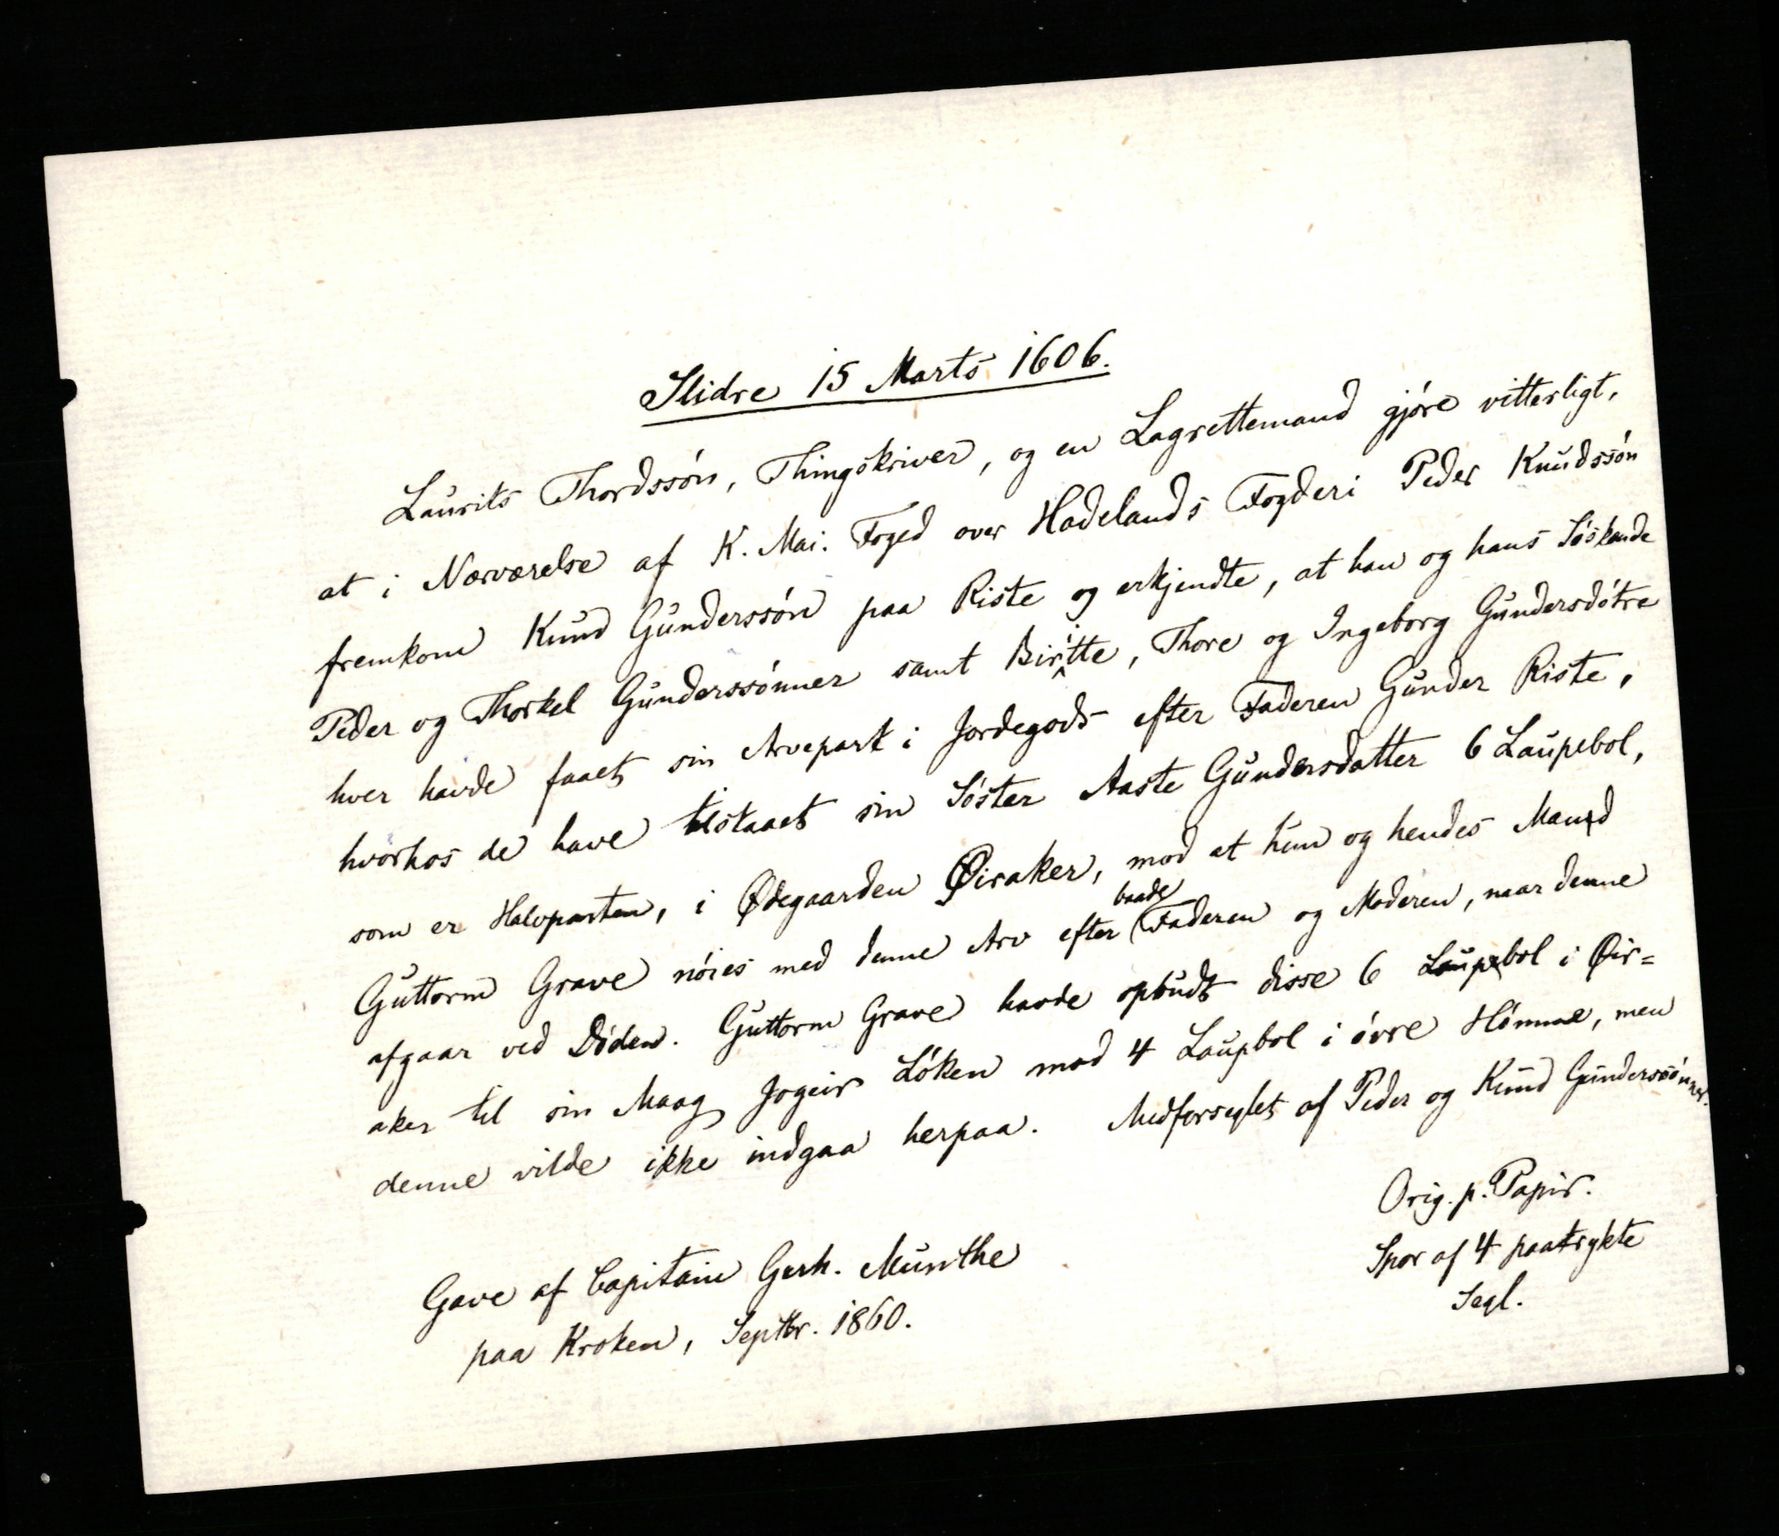 Slidre 15 Marts 1606.
Laurits Thordssón, Thingskriver, og en Lagrettemand gjóre vitterligt,
at i Nærværelse af K. Mai. Foged over Hadelands Fogderi Peder Knudssón
fremkom Knud Gunderssón paa Riste og erkjendte, at han og hans Sóskende
Peder og Thorkel Gunderssónner samt Biritte, Thore og Ingeborg Gundersdótre
hver havde faaet sin Arvepart i Jordegods efter Faderen Gunder Riste,
hvorhos de have tilstaaet sin Sóster Aaste Gundersdatter 6 Laupebol,
som er Halvparten, i Ødegaarden Øiraker, mod at hun og hendes Mand
Guttorm Grave nóies med denne Arv efter baade Faderen og Moderen, naar denne
afgaar ved Dóden. Guttorm Grave havde opbudt disse 6 Laupebol i Øir=
aker til sin Maag Jogeir Lóken mod 4 Laupbol i óvre Hómme, men
denne vilde ikke indgaa herpaa. Medforseglet af Peder og Knud Gunderssónner.
Orig. p. Papir.
Spor af 4 paatrykte
Segl.
Gave af Capitain Gerh. Munthe
paa Kroken, Septbr. 1860.